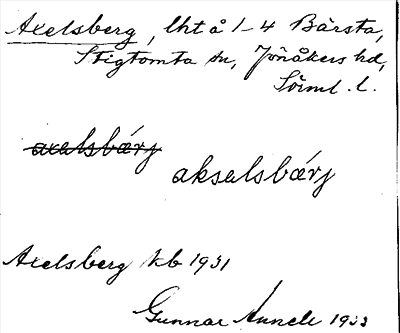 Axelsberg, lht å 1-4 Bärsta,
Stigtomta sn, Jönåkers hd,
Söiml. l.
axalsbærj
aksalsbærj
Axelsberg kb 1931
Gunnar Linnell 1933